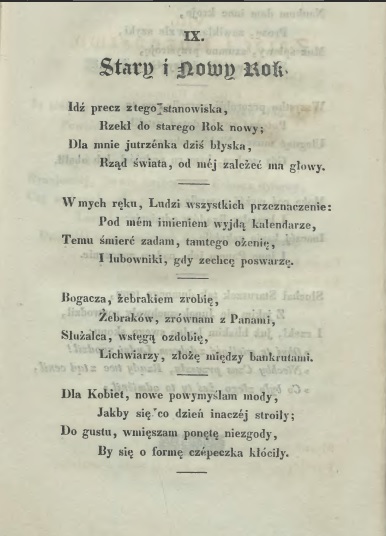 IX.
Stary i Nowy Rok.
Idź precz z tego stanowiska,
Rzekł do starego Rok nowy;
Dla mnie jutrzénka dziś błyska,
Rząd świata, od méj zależeć ma głowy.
W mych ręku, Ludzi wszystkich przeznaczenie:
Pod mém imieniem wyjdą kalendarze,
Temu śmierć zadam, tamtego ożenię,
I lubowniki, gdy zechcę poswarzę.
Bogacza, żebrakiem zrobię,
Żebraków, zrównam z Panami,
Służalca, wstęgą ozdobię,
Lichwiarzy, złożę między bankrutami.
Dla Kobiet, nowe powymyślam mody,
Jakby się co dzień inaczéj stroiły;
Do gustu, wmięszam ponętę niezgody,
By się o formę czépeczka kłóciły.